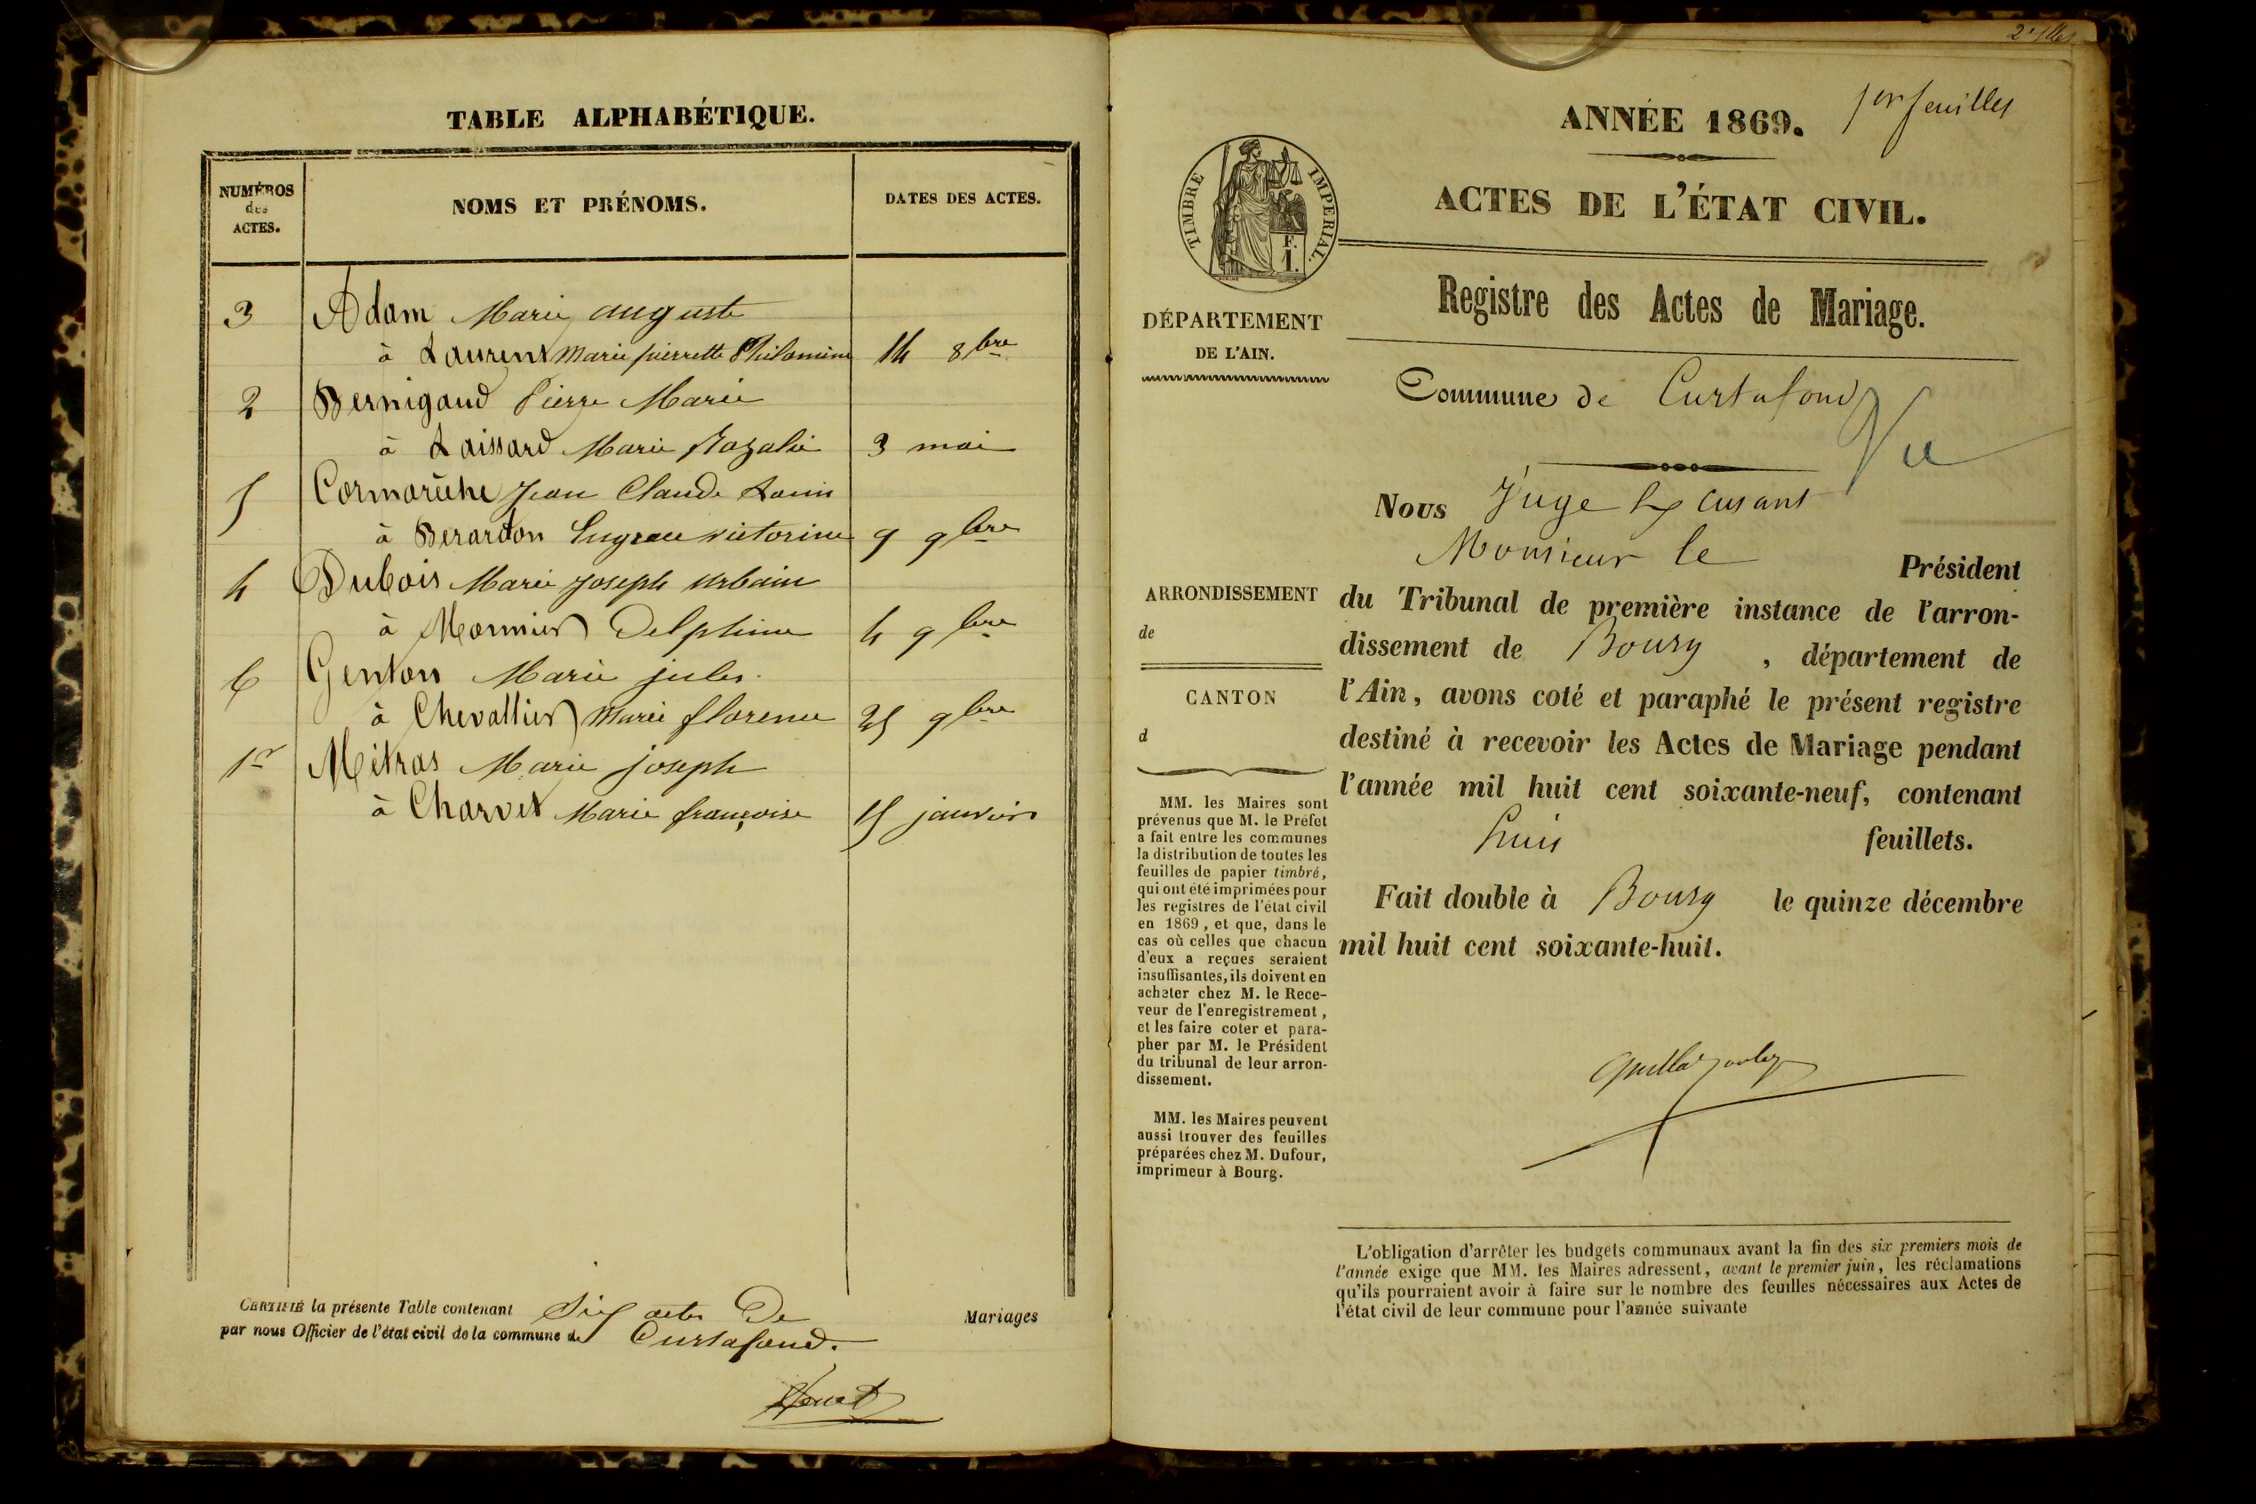 TABLE ALPHABÉTIQUE.
NUMÉROS
des
ACTES.
NOMS ET PRÉNOMS.
DATES DES ACTES.
3 Adam Marie auguste
à Laurent Marie pierrette Philomène 14 8bre
2 Bernigaud Pierre Marie
à Laissard Marie Rozalie 3 mai
5 Cormarèche Jean Claude Louis
à Berardon victorine 9 9bre
4 Dubois Marie Joseph Urbain
à Monnier Delphine 4 9bre
6 Genton Marie jules
à Chevallier Marie florence 25 9bre
1er Mitras Marie joseph
à Charvet Marie françoise 15 janvier
CERTIFIÉ la présente Table contenant Six actes De Mariages
par nous Officier de l'état civil de la commune de Curtafond.
2e flle
1ere feuilles
ANNÉE 1869.
ACTES DE L'ÉTAT CIVIL.
TIMBRE IMPERIAL.
F.
1.
Registre des Actes de Mariage.
DÉPARTEMENT
DE L'AIN.
Commune de Curtafond
Vu
Nous Juge
Monsieur le Président
ARRONDISSEMENT
de
CANTON
d
du Tribunal de première instance de l'arron-
dissement de Bourg, département de
l'Ain, avons coté et paraphé le présent registre
destiné à recevoir les Actes de Mariage pendant
l'année mil huit cent soixante-neuf, contenant
huit feuillets.
Fait double à Bourg le quinze décembre
mil huit cent soixante-huit.
MM. les Maires sont
prévenus que M. le Préfet
a fait entre les communes
la distribution de toutes les
feuilles de papier timbré,
qui ont été imprimées pour
les registres de l'état civil
en 1869, et que, dans le
cas où celles que chacun
d'eux a reçues seraient
insuffisantes, ils doivent en
acheter chez M. le Rece-
veur de l'enregistrement,
et les faire coter et para-
pher par M. le Président
du tribunal de leur arron-
dissement.
MM. les Maires peuvent
aussi trouver des feuilles
préparées chez M. Dufour,
imprimeur à Bourg.
L'obligation d'arrêter les budgets communaux avant la fin des six premiers mois de
l'année exige que MM. les Maires adressent, avant le premier juin, les réclamations
qu'ils pourraient avoir à faire sur le nombre des feuilles nécessaires aux Actes de
l'état civil de leur commune pour l'année suivante